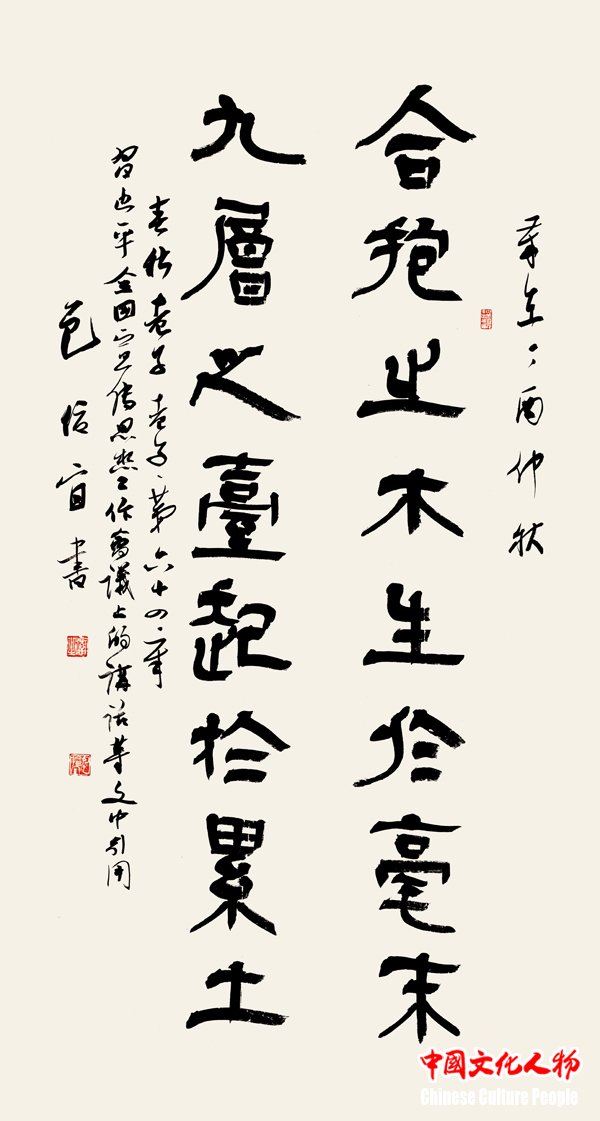 歲在丁酉仲秋
合抱之木生於毫末
九層之臺起於累土
春秋 老子 老子、第六十四章
習近平全国宣傳思想工作會議上的講話等文中引用
包信 書
中國文化人物
Chinese Culture People